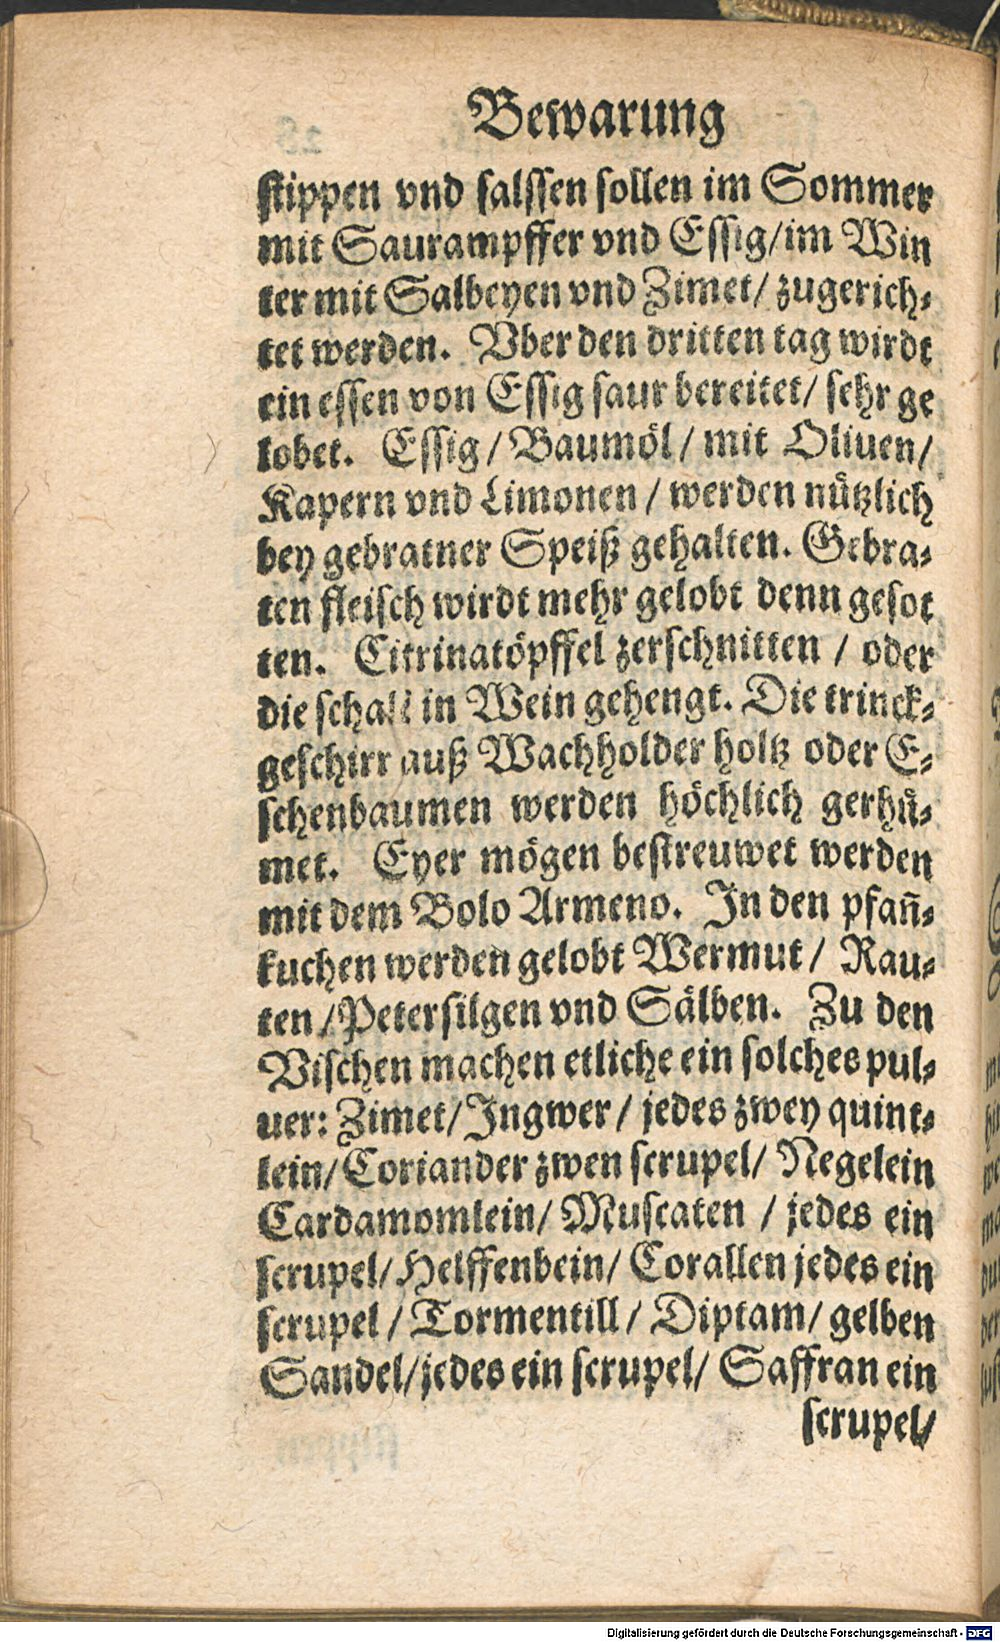 Bewarung
ſtippen vnd ſalſſen ſollen im Sommer
mit Saurampffer vnd Eſſig/im Win
ter mit Salbeyen vnd Zimet/ zugerich⸗
tet werden. Vber den dritten tag wirdt
ein eſſen von Eſſig ſaur bereitet/ ſehr ge
lobet. Eſſig/ Baumöl/ mit Oliuen/
Kapern vnd Limonen / werden nützlich
bey gebratner Speiß gehalten. Gebra⸗
ten fleiſch wirdt mehr gelobt denn geſot
ten. Citrinatöpffel zerſchnitten / oder
die ſchall in Wein gehengt. Die trinck⸗
geſchirr auß Wachholder holtz oder E⸗
ſchenbaumen werden höchlich gerhü⸗
met. Eyer mögen beſtreuwet werden
mit dem Bolo Armeno. In den pfañ⸗
kuchen werden gelobt Wermut/ Rau⸗
ten/Peterſilgen vnd Sälben. Zu den
Viſchen machen etliche ein ſolches pul⸗
uer: Zimet/Ingwer/ jedes zwey quint⸗
lein/Coriander zwen ſcrupel/ Negelein
Cardamomlein/ Muſcaten / jedes ein
ſcrupel/Helffenbein/ Corallen jedes ein
ſcrupel/ Tormentill/ Diptam/ gelben
Sandel/jedes ein ſcrupel/ Saffran ein
ſcrupel/
Digitalisierung gefördert durch die Deutsche Forschungsgemeinschaft - DFG